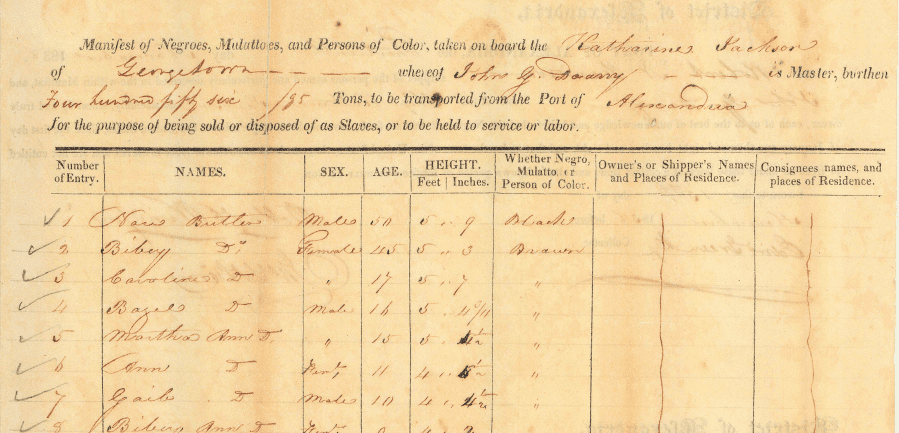 Manifest of Negroes, Mulattoes, and Persons of Color, taken on board the Katharine Jackson
of Georgetown whereof John G. is Master, burthen
Four hundred fifty six /95 Tons, to be transported from the Port of Alexandria
for the purpose of being sold or disposed of as Slaves, or to be held to service or labor.
Number of Entry. NAMES. SEX. AGE. HEIGHT. Feet Inches. Whether Negro, Mulatto, or Person of Color. Owner's or Shipper's Names and Places of Residence. Consignees names, and places of Residence.
1 Nace Butler Male 50 5 " 9 Black
2 Bibey Do. Female 45 5 " 3 Brown
3 Caroline D " 17 5 " 7 "
4 Bazel D Male 16 5 " "
5 Martha Ann D. " 15 5 " 4½ "
6 Ann D Fem. 11 4 " "
7 Gabe D Male 10 4 " 4½ "
8 Bibey Ann D Fem. 4